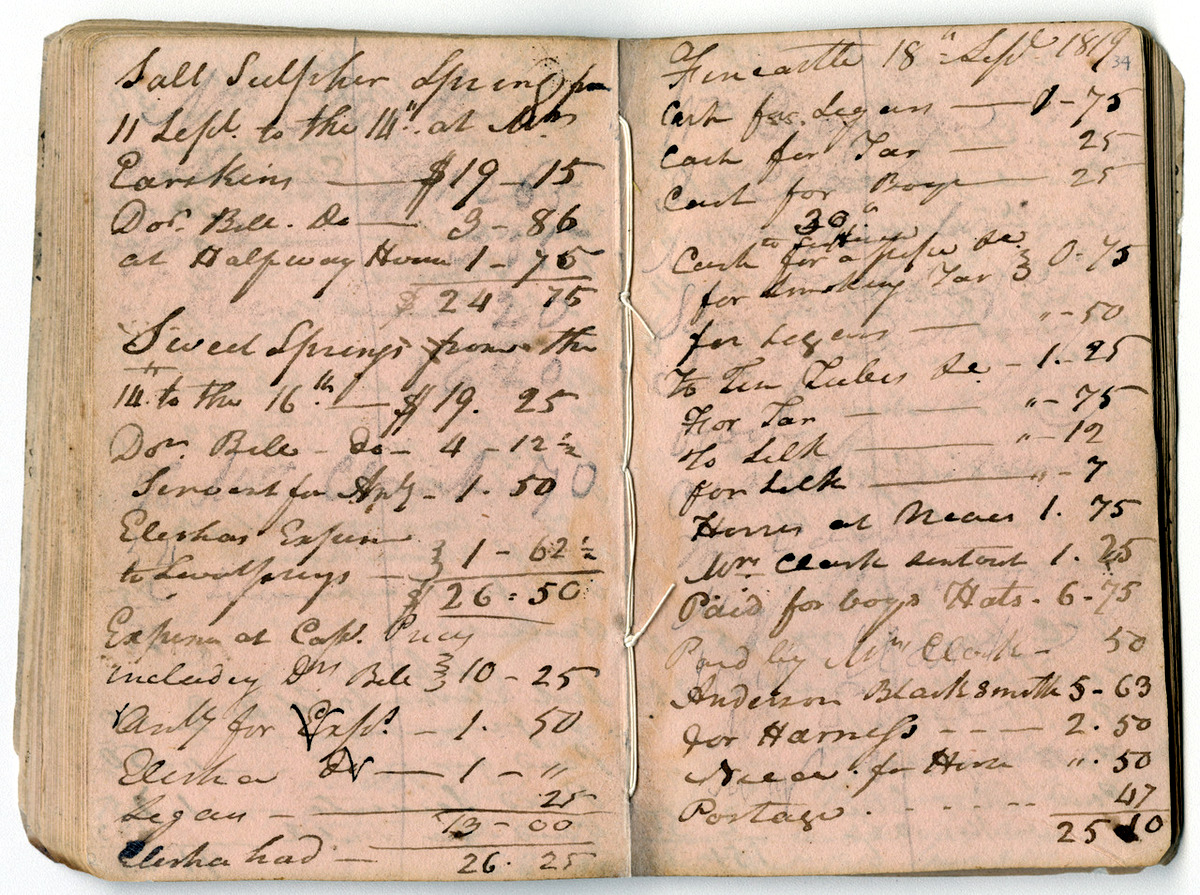 Salt Sulpher Spring from
11 Sept. to the 14" at Mrs
Earskins — $19 - 15
Dor. Bill. Do — 3 - 86
at Halfway House 1 - 75
$ 24 75
Sweet Springs from the
14 to the 16th — $19. 25
Dor. Bill - do - 4 - 12½
Servest for Apl - 1. 50
Eleshas Expen
to - 1 - 62½
$ 26 = 50
Expense at Capt. Prices
includey Drs Bill 10 - 25
for Exps. - 1. 50
Elesha Do — 1 - "
Segars — 25
13 - 00
Elesha had — 26. 25
Fincastle 18" Sept 1819
34
Cash for Segars — 1 - 75
Cash for Tar — 25
Cash for Boys — 25
30"
to
Cash for a pipe &c
for smoking Tar 0 - 75
for Segars — " - 50
To Tin Tubes &c - 1 - 25
For Tar — " - 75
To Silk — " - 12
for Silk — " - 7
Horses at Neaces 1. 75
Mrs Clark sent out 1. 25
Paid for boys Hats - 6 - 75
Paid by Mrs Clark - 50
Anderson Blacksmith 5 - 63
for Harness - - - - 2. 50
Neece for Horse ". 50
Postage . - - - - 47
25 10